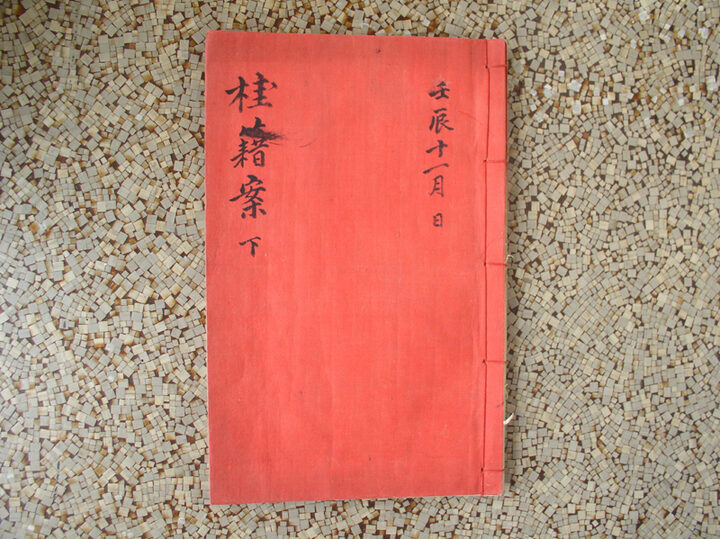 壬辰十一月 日
桂籍案 下